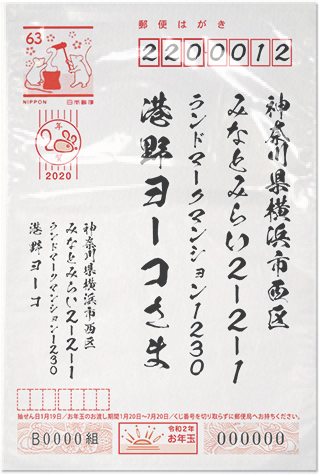 郵便はがき
2200012
63
NIPPON 日本郵便
年賀
2020
神奈川県横浜市西区
みなとみらい2-2-1
ランドマークマンション1230
港野ヨーコさま
神奈川県横浜市西区
みなとみらい2-2-1
ランドマークマンション1230
港野ヨーコ
抽せん日1月19日/お年玉のお渡し期間1月20日~7月20日/くじ番号を切り取らずに郵便局へお持ちください。
B0000組
令和2年
お年玉
000000